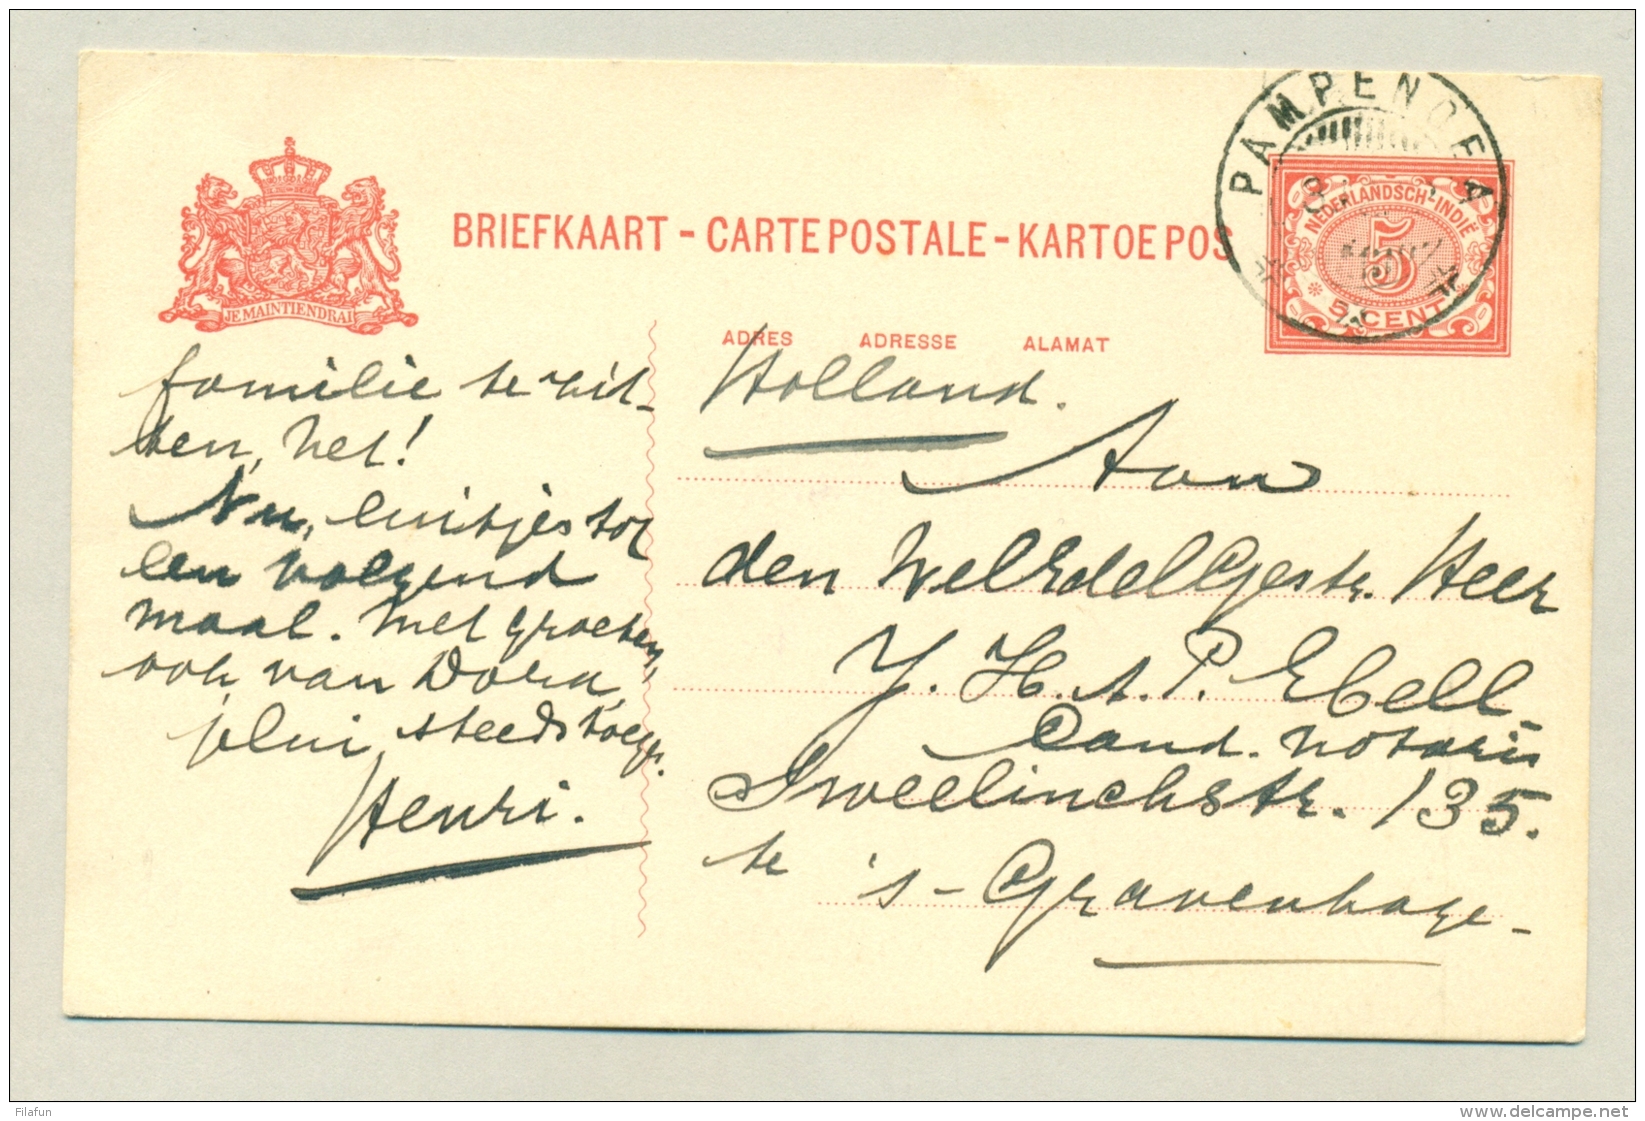 PAMPENOEA
JE MAINTIENDRAI
BRIEFKAART - CARTE POSTALE - KARTOE POS
NEDERLANDSCH-INDIË
5
5 CENT
ADRES ADRESSE ALAMAT
familie te zit-
ten, het!
Nu, luitjes tot
een volgend
maal. Met groeten,
ook van Dora,
steeds toegen.
Henri.
Holland.
Aan
den WelEdelGestr. Heer
J. H. A. P. Ebell
Cand. notaris
Sweelinckstr. 135.
te 's-Gravenhage-
Filafun
www.delcampe.net